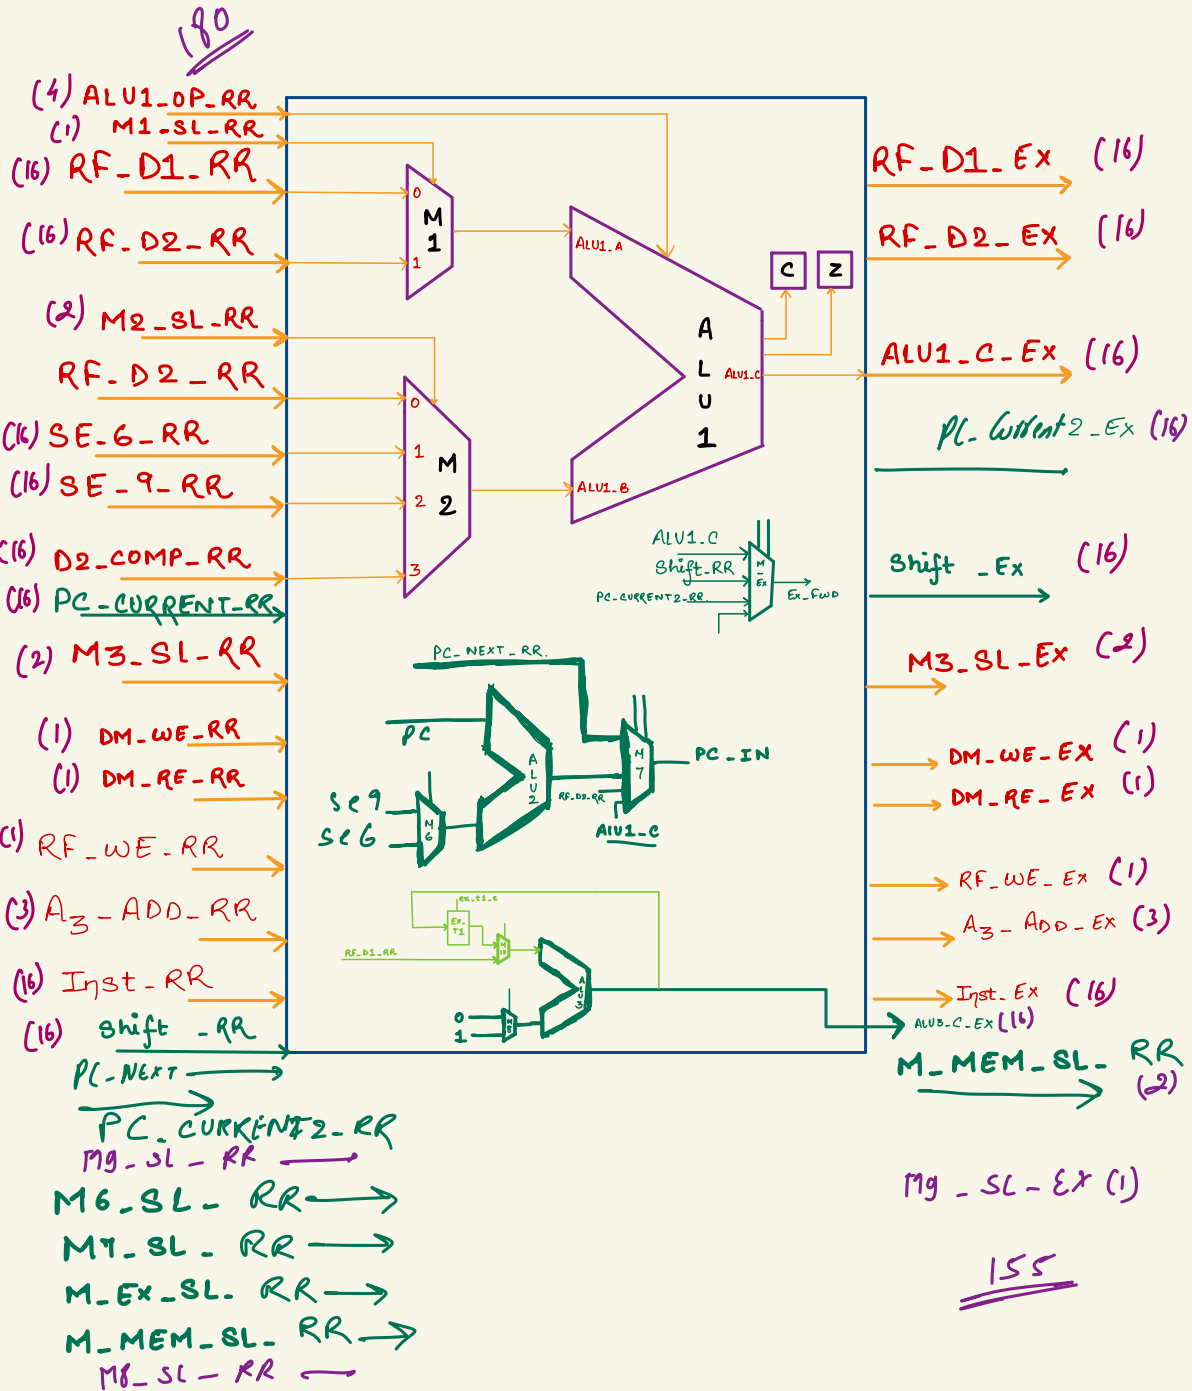 180
(4) ALU1_OP_RR
(1) M1_SL_RR
(16) RF_D1_RR
(16) RF_D2_RR
(2) M2_SL_RR
RF_D2_RR
(16) SE_6_RR
(16) SE_9_RR
(16) D2_COMP_RR
(16) PC_CURRENT_RR
(2) M3_SL_RR
(1) DM_WE_RR
(1) DM_RE_RR
(1) RF_WE_RR
(3) A3_ADD_RR
(16) Inst_RR
(16) Shift_RR
PC_NEXT
PC_CURRENT2_RR
M9_SL_RR
M6_SL_RR
M7_SL_RR
M_EX_SL_RR
M_MEM_SL_RR
M8_SL_RR
0
M
1
1
0
1
M
2
2
3
ALU1_A
A
L
U
1
ALU1_C
ALU1_B
C
Z
ALU1_C
Shift_RR
PC_CURRENT2_RR
M
-
Ex
Ex_FWD
PC_NEXT_RR.
PC
A
L
U
2
Se9
Se6
M
6
M
7
PC_IN
RF_D2_RR
AlU1_C
ex_t1_e
Ex_
T1
RF_D1_RR
0
1
A
L
U
3
RF_D1_Ex (16)
RF_D2_Ex (16)
ALU1_C_Ex (16)
PC_Current2_Ex (16)
Shift_Ex (16)
M3_SL_Ex (2)
DM_WE_Ex (1)
DM_RE_Ex (1)
RF_WE_Ex (1)
A3_ADD_Ex (3)
Inst_Ex (16)
ALU3_C_EX (16)
M_MEM_SL_RR
(2)
M9_SL_EX (1)
155